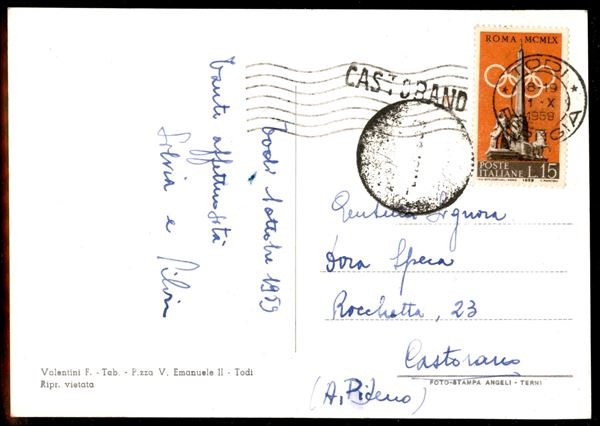 Todi 1 ottobre 1959
Tante affettuosità
Silvia e Silvia
Valentini F. - Tab. - P.zza V. Emanuele II - Todi
Ripr. vietata
CASTORANO
ROMA MCMLX
POSTE
ITALIANE L.15
1959
TODI
8-19
1-X
1959
Gentile Signora
Dora Speca
Rocchetta, 23
Castorano
(A. Piceno)
FOTO-STAMPA ANGELI - TERNI